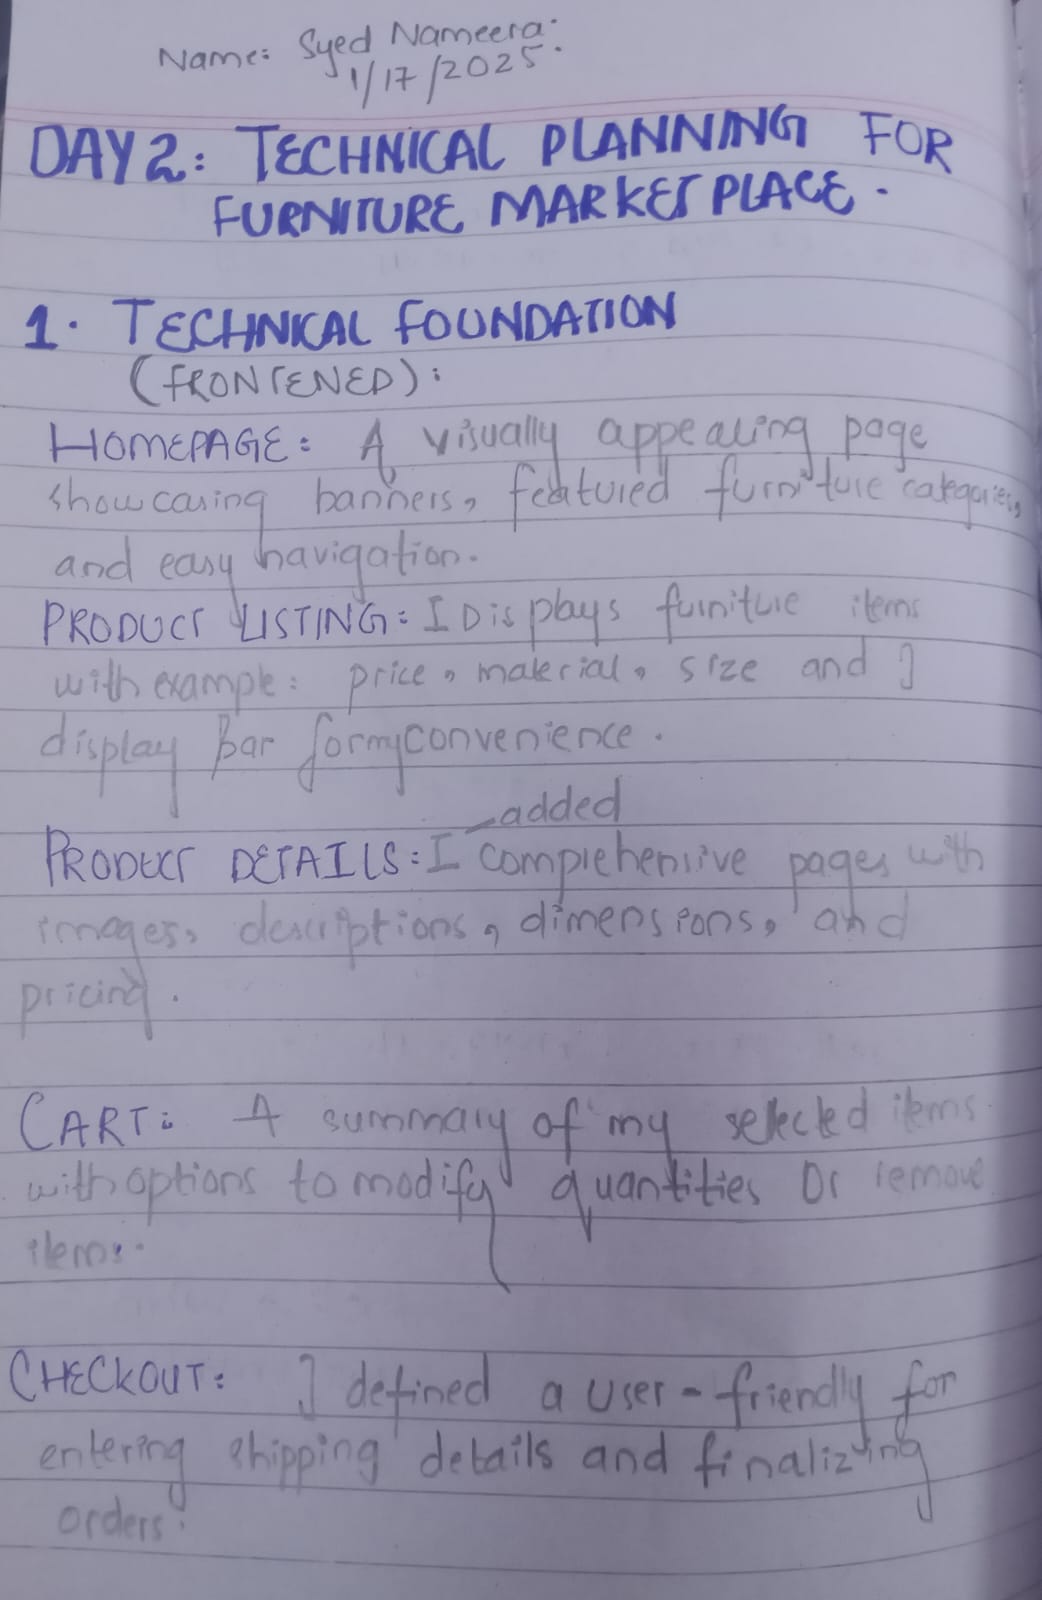 Name: Syed Nameera.
1/17/2025.
DAY 2: TECHNICAL PLANNING FOR
FURNITURE MARKET PLACE.
1. TECHNICAL FOUNDATION
(FRONTENED):
HOMEPAGE: A visually appealing page
showcasing banners, featured furniture categories,
and easy navigation.
PRODUCT LISTING: I Displays furniture items
with example: price, material, size and I
display Bar for my convenience.
added
PRODUCT DETAILS: I comprehensive pages with
images, descriptions, dimensions, and
pricing.
CART: A summary of my selected items
with options to modify quantities or remove
items.
CHECKOUT: I defined a user-friendly for
entering shipping details and finalizing
orders.